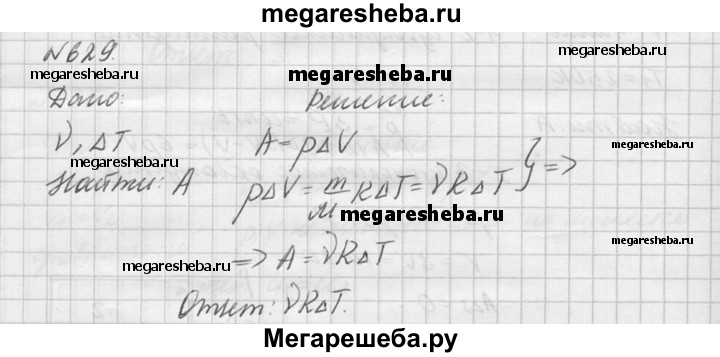 megaresheba.ru
N629.
megaresheba.ru
megaresheba.ru
Дано: Решение:
ν, ΔT A = pΔV
megaresheba.ru
Найти: A pΔV = m/M RΔT = νRΔT } =>
megaresheba.ru
megaresheba.ru
=> A = νRΔT
megaresheba.ru
Ответ: νRΔT.
Мегарешеба.ру